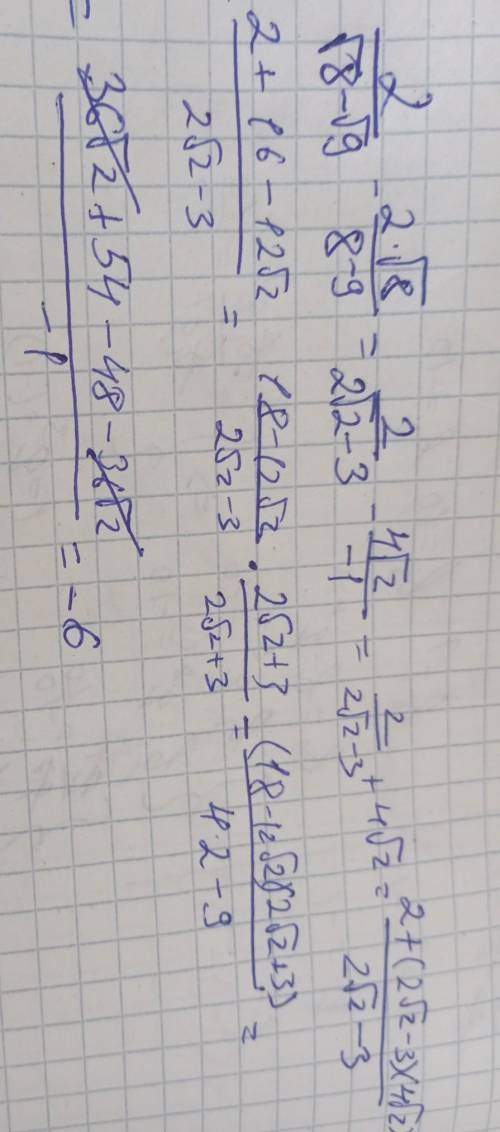 2/(√8-√9) - 2·√8/(8-9) = 2/(2√2-3) - 4√2/(-1) = 2/(2√2-3) + 4√2 = (2+(2√2-3)(4√2)/(2√2-3)
(2+16-12√2)/(2√2-3) = (18-12√2)/(2√2-3) · (2√2+3)/(2√2+3) = (18-12√2)(2√2+3)/(4·2-9) =
= (36√2+54-48-36√2)/(-1) = -6